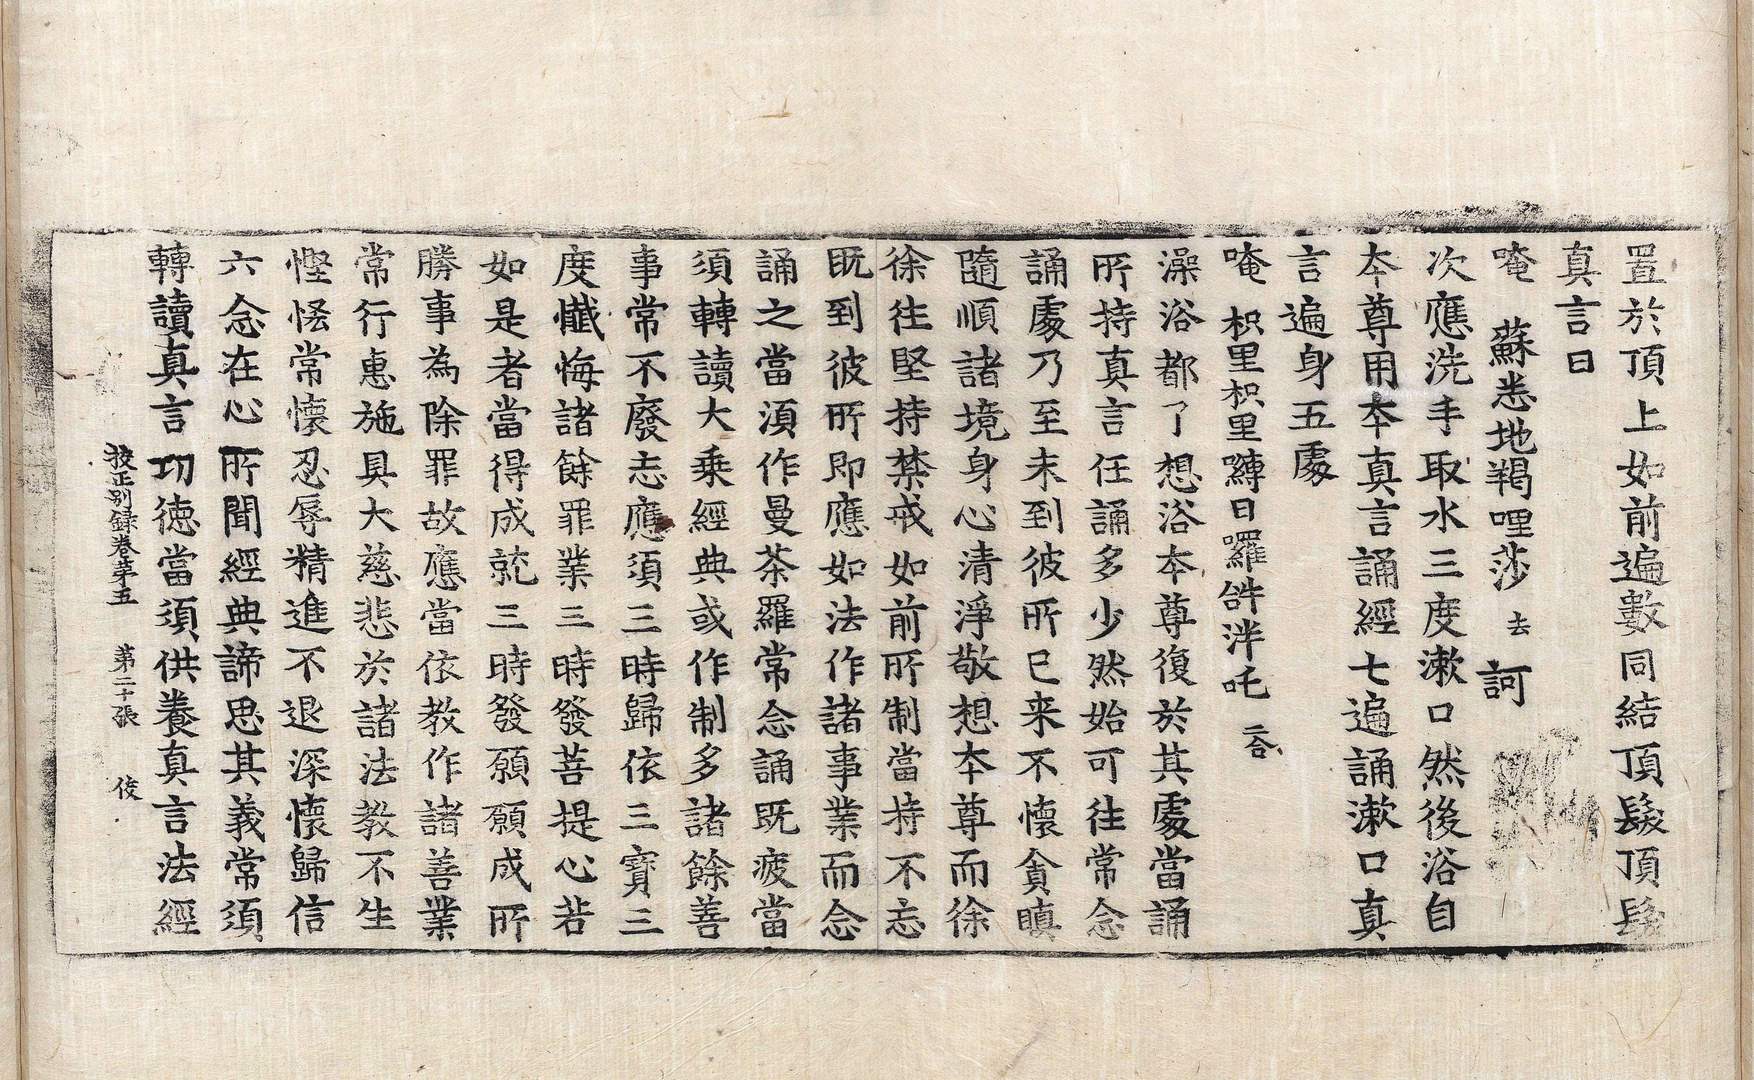 置於頂上如前遍數同結頂髮頂髮
真言曰
唵 蘇悉地羯哩莎 去 訶
次應洗手取水三度漱口然後浴自
本尊用本真言誦經七遍誦漱口真
言遍身五處
唵 枳里枳里嚩日囉𤙖泮吒 二合
澡浴都了想浴本尊復於其處當誦
所持真言任誦多少然始可往常念
誦處乃至未到彼所已来不懷貪瞋
隨順諸境身心清淨敬想本尊而徐
徐往堅持禁戒如前所制當持不忘
既到彼所即應如法作諸事業而念
誦之當須作曼茶羅常念誦既疲當
須轉讀大乘經典或作制多諸餘善
事常不廢忘應須三時歸依三寶三
度懺悔諸餘罪業三時發菩提心若
如是者當得成就三時發願願成所
勝事為除罪故應當依教作諸善業
常行惠施具大慈悲於諸法教不生
慳悋常懷忍辱精進不退深懷歸信
六念在心所聞經典諦思其義常須
轉讀真言功德當須供養真言法經
校正別録卷苐五 第二十張 俊